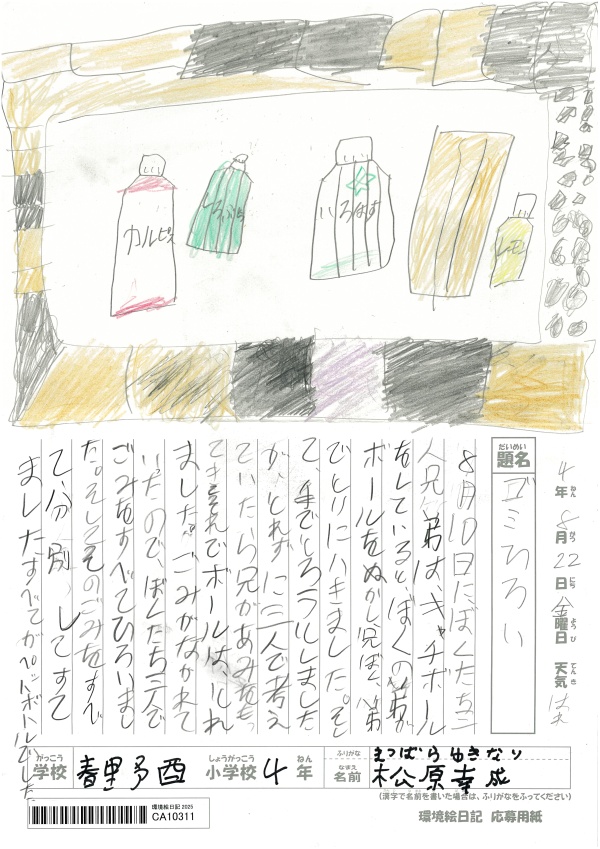 カルピス
いろはす
レモン
だいめい
題名
ゴミひろい
4年ねん8月がつ22日にち金曜日ようび 天気てんき はれ
8月10日にぼくたち三
人兄弟は、キャチボール
をしているとぼくの弟が
ボールをぬかし兄ぼく、弟
でとりにいきました。そし
て、手でとろうとしました
が、とれずに三人で考え
ていたら兄があみをもっ
てきそれでボールはとれ
ました。ごみがながれて
いたので、ぼくたち三人で
ごみをすべてひろいまし
た。そしてそのごみをすべ
て、分別してすて
ましたすべてがペットボトルでした
がっこう しょうがっこう ねん
学校 小学校 4年
ふりがな まつばら ゆきなり
なまえ
名前 松原幸成
(漢字で名前を書いた場合は、ふりがなをふってください)
環境絵日記 2025
CA10311
環境絵日記 応募用紙